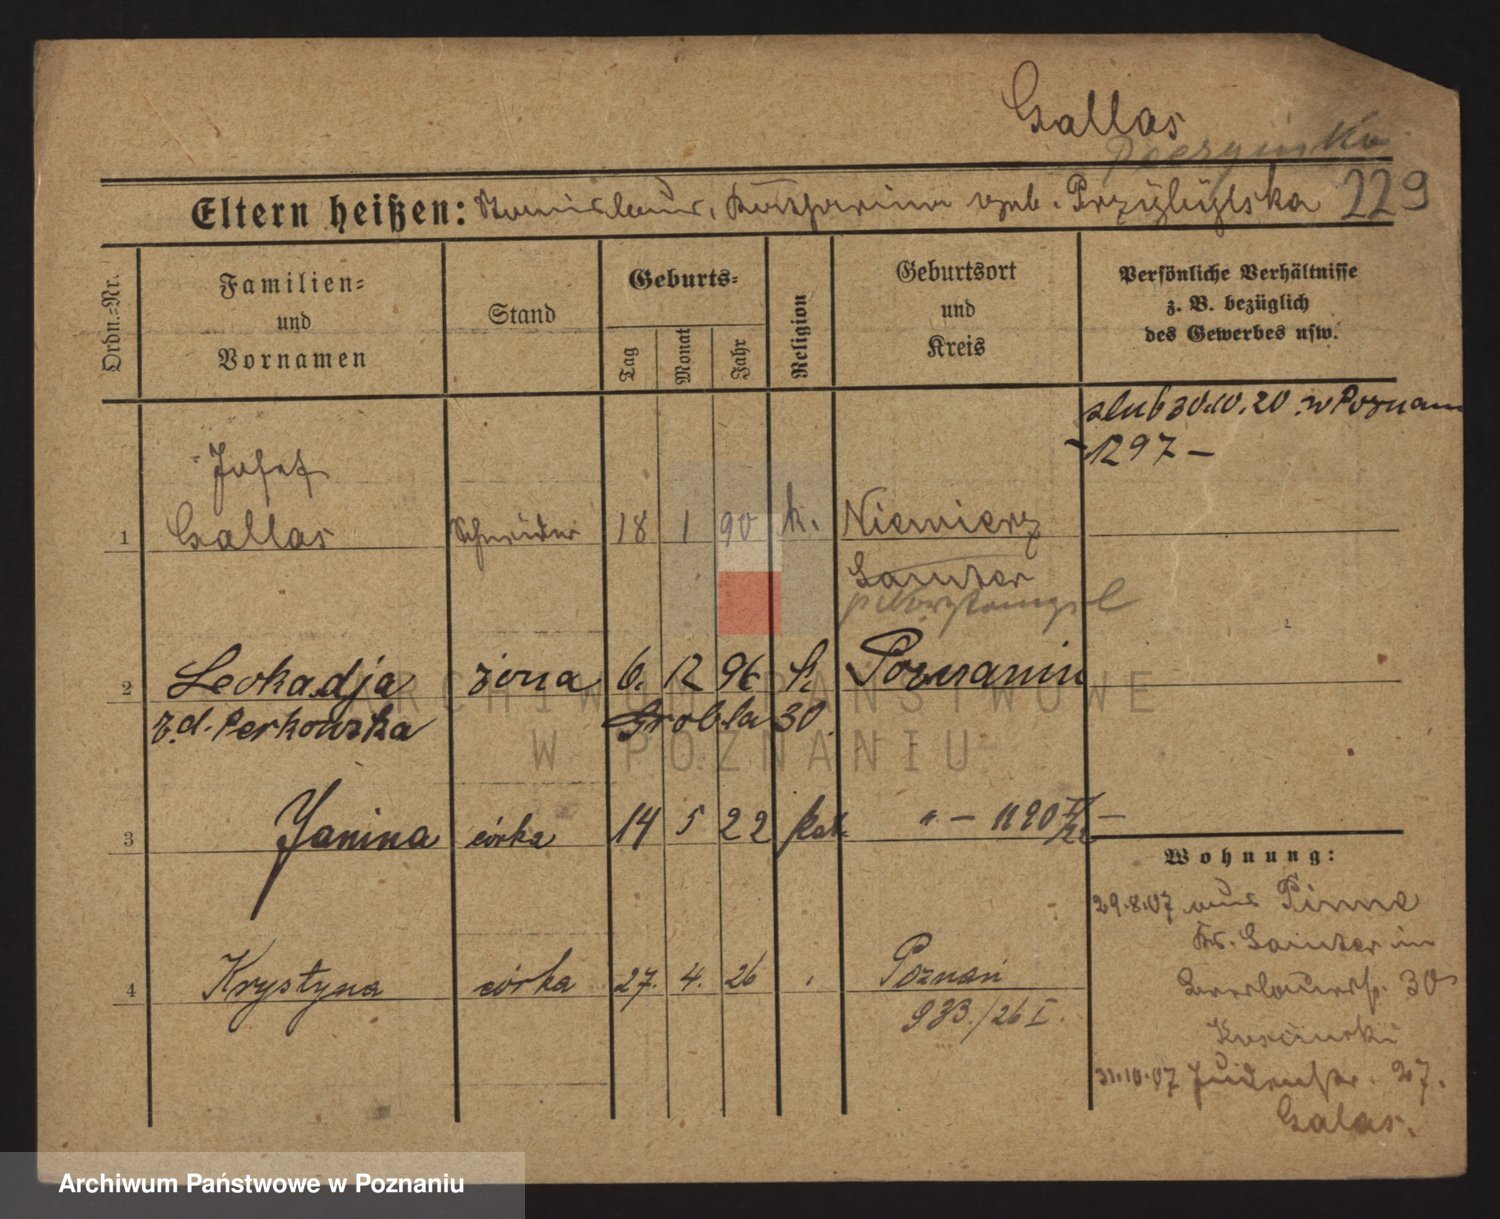 Gallas
229
Eltern heißen: Stanislaus, Katharina geb. Przybylska
Ordn.=Nr.
Familien=
und
Vornamen
Stand
Geburts=
Tag
Monat
Jahr
Religion
Geburtsort
und
Kreis
Persönliche Verhältnisse
z. B. bezüglich
des Gewerbes usw.
ślub 30.10.20 w Poznan
1297 –
Josef
1 Gallas Schneider 18 1 90 k. Niemierz
Samter
2 Leokadja żona 6. 12 96 k Poznaniu
z.d. Perkowska Grobla 30.
3 Janina córka 14 5 22 kat. " – 1120
4 Krystyna córka 27. 4. 26 Poznań
933./26 I.
Wohnung:
29.8.07 aus Pinne
Kr. Samter in
30
31.10.07 Judenstr. 27.
Galas.
ARCHIWUM PAŃSTWOWE
W POZNANIU
Archiwum Państwowe w Poznaniu